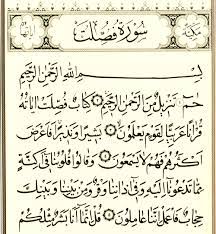 سورة فصلت
بسم الله الرحمن الرحيم
حم تنزيل من الرحمن الرحيم كتاب فصلت اياته
قرآنا عربيا لقوم يعلمون بشيرا ونذيرا فاعرض
اكثرهم فهم لا يسمعون وقالوا قلوبنا في اكنة
مما تدعونا اليه وفي آذاننا وقر ومن بيننا وبينك
حجاب فاعمل اننا عاملون قل انما انا بشر مثلكم